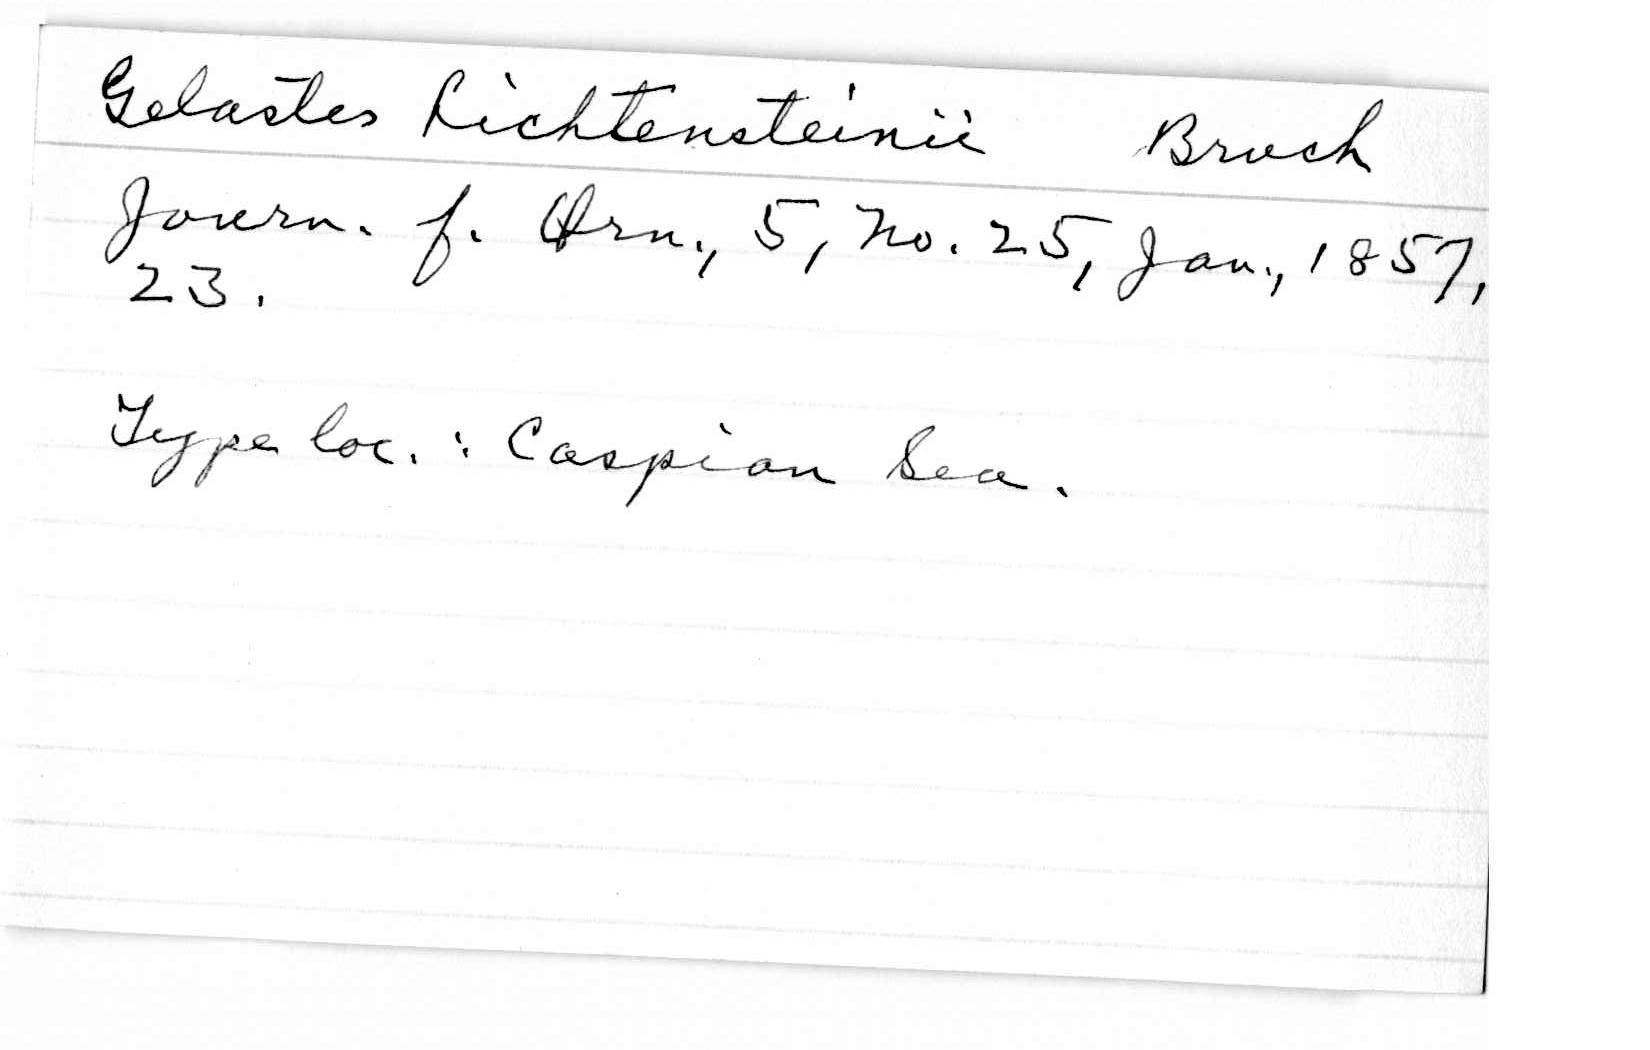 Gelastes Lichtensteinii Bruch
Journ. f. Orn., 5, No. 25, Jan., 1857,
23.
Type loc. : Caspian Sea.